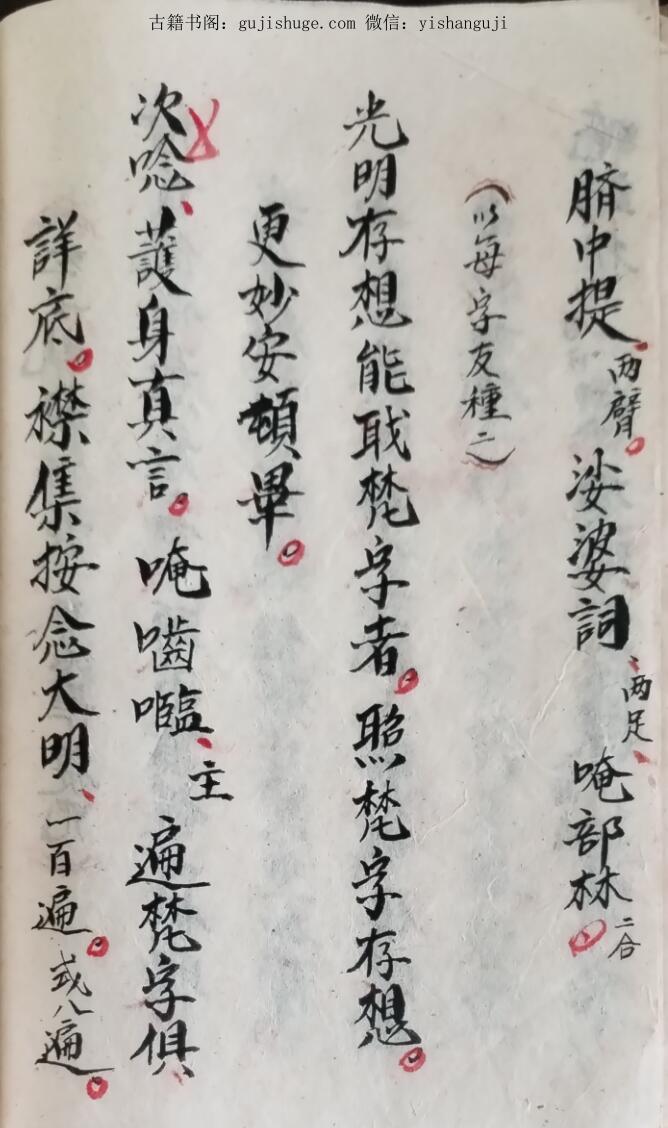 古籍书阁：gujishuge.com 微信：yishanguji
臍中提、兩臂。娑婆訶、兩足、唵部林。二合
（以每字友種之）
光明存想能戢梵字者。照梵字存想。
更妙安頓畢。
次唸、護身真言。唵嚙嚂、主遍梵字俱
詳底。襟集按念大明、一百遍。或八遍。